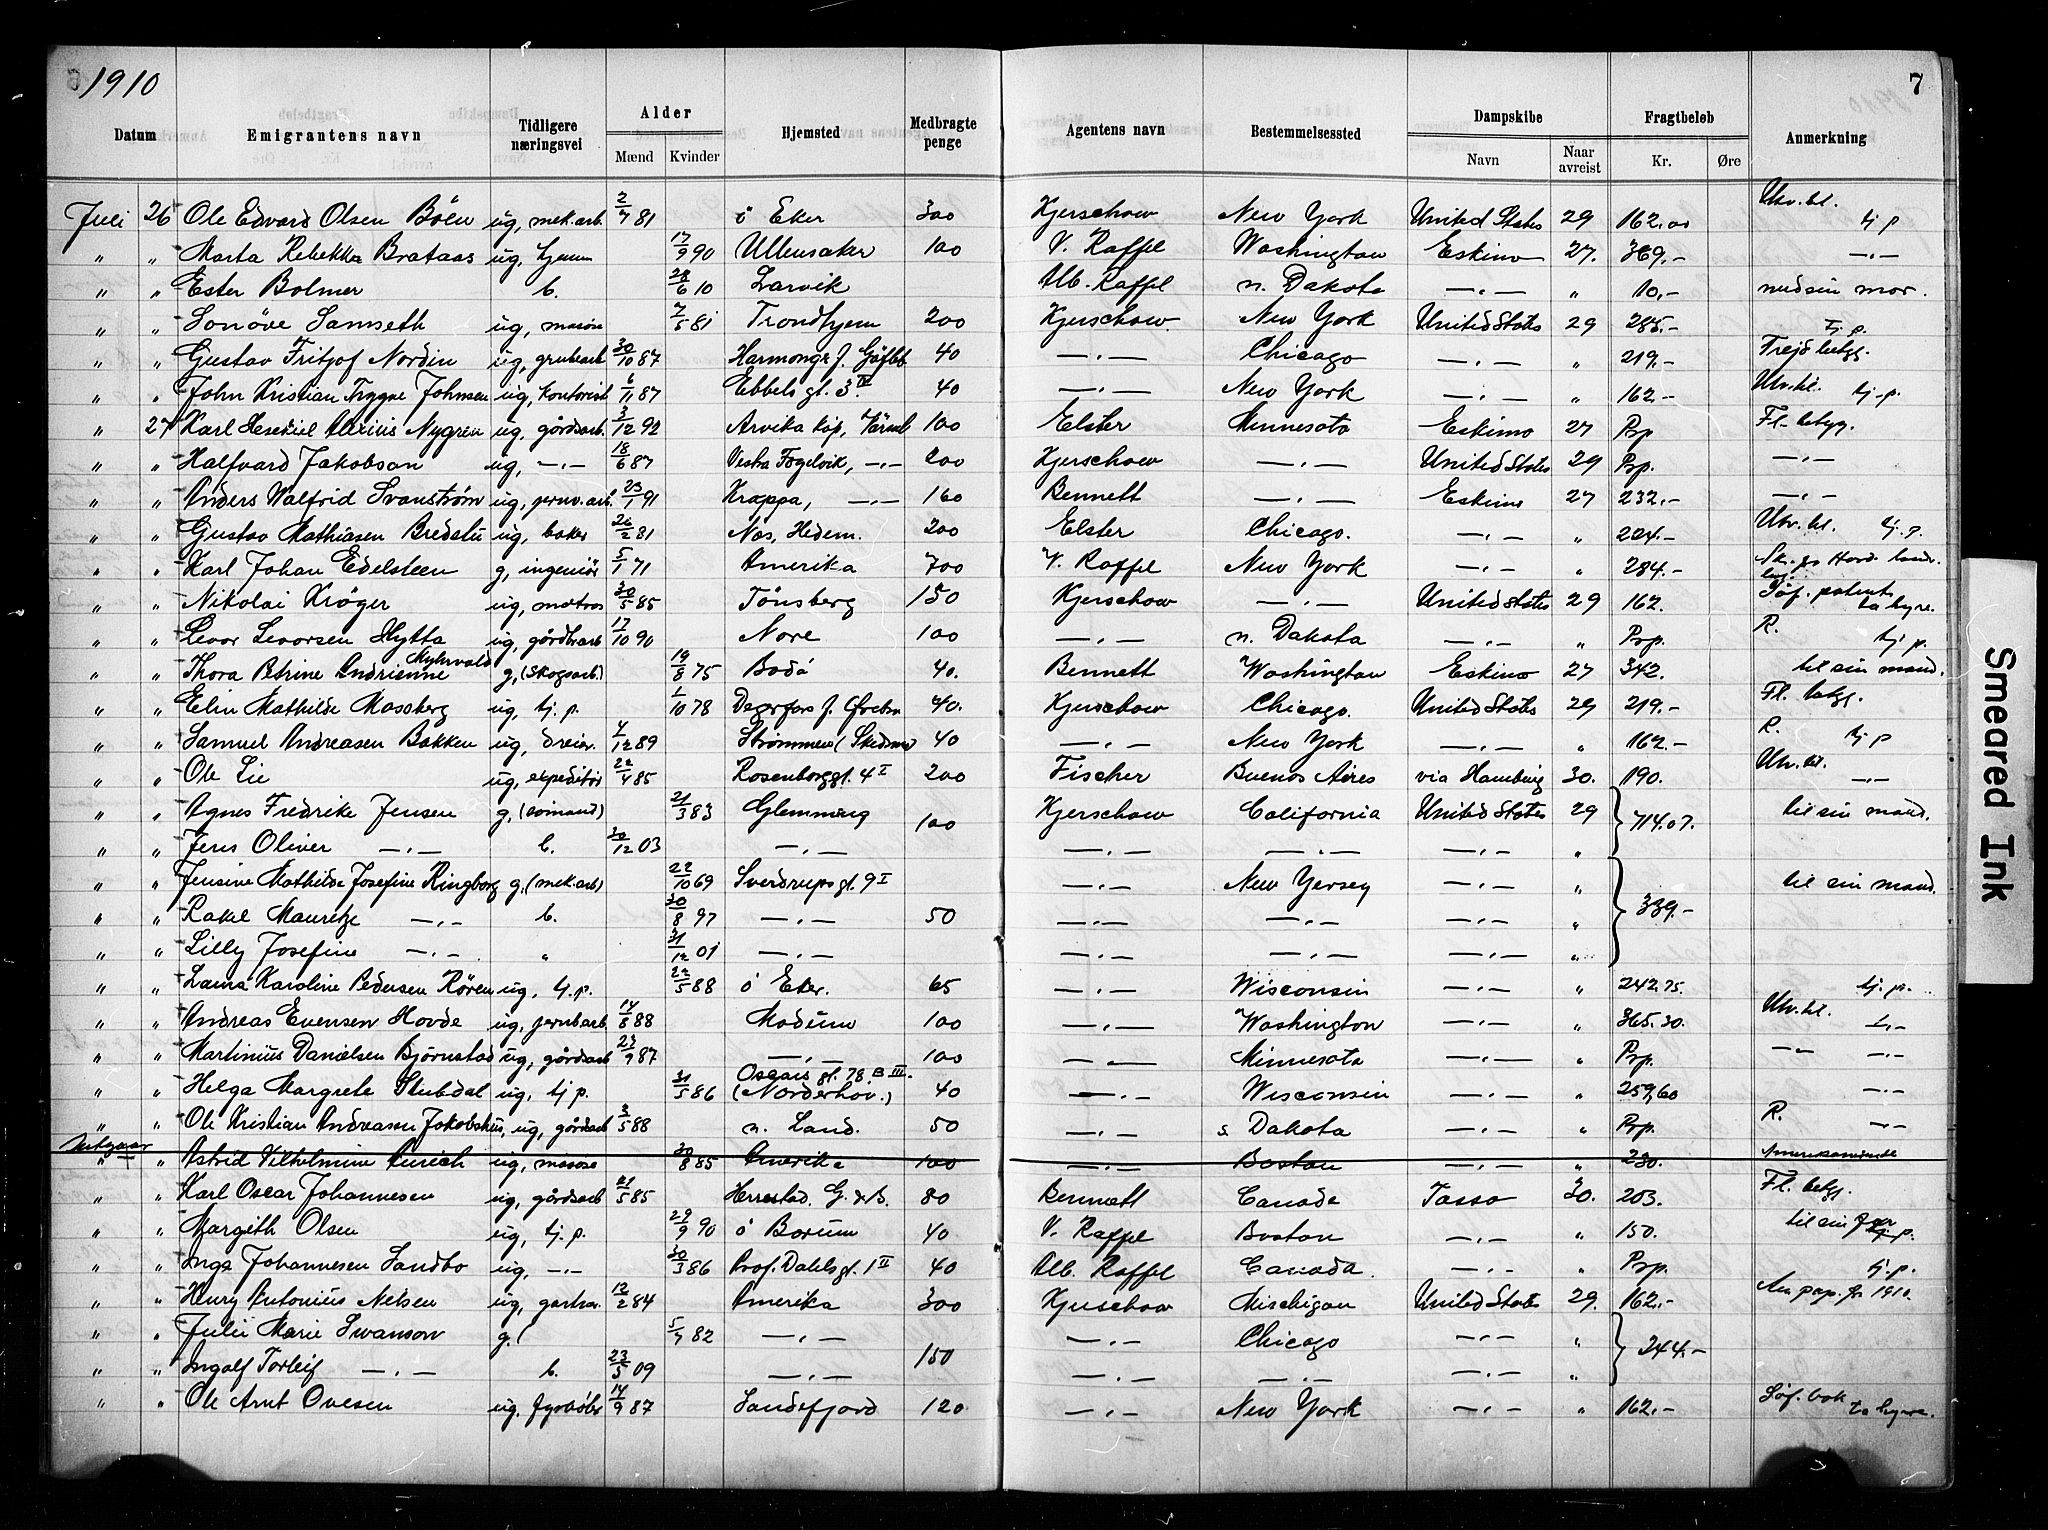 1910
7
Datum | Emigrantens navn | Tidligere næringsvei | Alder Mænd | Kvinder | Hjemsted | Medbragte penge | Agentens navn | Bestemmelsessted | Dampskibe Navn | Naar avreist | Fragtbeløb Kr. | Øre | Anmerkning
Juli 26 Ole Edvard Olsen Böen ug, mek.arb. 2/7 81 ö Eker 300 Kjerschow New York United States 29 162.00 Utv.bl. tj p
" " Marta Rebekka Brataas ug, hjem 17/9 90 Ullensaker 100 V. Raffel Washington Eskimo 27. 369.- —„—
" " Ester Bolmer b. 28/6 10 Larvik Alb. Raffel n. Dakota —„— " 10.- med sin mor.
" " Sonöve Samseth ug, 7/5 81 Trondhjem 200 Kjerschow. New York United States 29 285.- tj. p.
" " Gustav Fritjof Nordin ug, grubearb 30/10 87 Harmongr. f. Gäfleb 40 —„— Chicago —„— " 219.-
" " John Kristian Trygve Johnsen ug, kontorist 6/11 87 Ebbels gt. 3 IV 40 —„— New York —„— " 162.- Utv.bl. tj.p.
" 27 Karl Hesekiel Alexius Nygren ug, gårdsarb. 3/12 92 Arvika köp, Värml 100 Elster Minnesota Eskimo 27 Prp Fl. betyg.
" " Halfvard Jakobson ug, —„— 18/6 87 Vestra Fogelvik, —„— 200 Kjerschow —„— United States 29 Prp. —„—
" " Anders Valfrid Svanström ug, jernv.arb. 23/1 91 Krappa, —„— 160 Bennett —„— Eskimo 27 232.- —„—
" " Gustav Mathiasen Bredsti ug, baker 26/2 81 Nes, Hedem. 200 Elster Chicago. —„— " 204.- Utv.bl. tj.p.
" " Karl Johan Edelsteen g, ingeniör 5/1 71 Amerika 700 V. Raffel New York —„— " 284.-
" " Nikolai Kröger ug, matros 30/5 85 Tönsberg 150 Kjerschow —„— United States 29 162. Söf. patent ta hyre.
" " Levor Levorsen Hytta ug, gårdbrarb 17/10 90 Nore 100 —„— n. Dakota —„— " Prp. R. tj. p.
" " Thora Petrine Andrienne Myhrvold g, (Skogsarb.) 19/8 75 Bodö 40. Bennett Washington Eskimo 27 342. til sin mand.
" " Elin Mathilde Mossberg ug, tj. p. 1/10 78 Degerfors f. Örebro 40. Kjerschow Chicago. United States 29 219.- Fl. betyg.
" " Samuel Andreasen Bakken ug, dreier. 4/12 89 Strömmen (Skedsmo) 40 —„— New York —„— " 162.- R. tj. p
" " Ole Lie ug, expeditör 22/4 85 Rosenborggt. 4 I 200 Fischer Buenos Aires via Hamburg 30. 190. Utv.bl. —„—
" " Agnes Fredrike Jensen g, (sömand) 21/3 83 Glemming 100 Kjerschow California United States 29 714.07. til sin mand.
" " Jens Oliver —„— b. 30/12 03 —„— —„— —„— —„— "
" " Jensine Mathilde Josefine Ringborg g, (mek.arb) 22/10 69 Sverdrupsgt. 9 I —„— New Yersey —„— " 339.- til sin mand.
" " Rakel Mauritze —„— b. 30/8 97 —„— 50 —„— —„— —„— "
" " Lilly Josefine —„— " 31/12 01 —„— —„— —„— —„— "
" " Laura Karoline Pedersen Rören ug, tj. p. 22/5 88 ö Eker. 65 —„— Wisconsin —„— " 242.75. tj. p.
" " Andreas Evensen Hovde ug, jernbarb. 14/8 88 Modum 100 —„— Washington —„— " 365.30. Utv.bl. —„—
" " Martinius Danielsen Björnstad ug, gårdsarb 23/9 87 —„— 100 —„— Minnesota —„— " Prp. —„— —„—
" " Helga Margrete Stubdal ug, tj p. 31/5 86 Oscars gt. 78 B III. (Norderhov.) 40 —„— Wisconsin —„— " 259,60 —„—
" " Ole Kristian Andreasen Jakobshus, ug, gårdsarb 3/5 88 n. Land. 50 —„— s. Dakota —„— " Prp. R. —„—
" " Astrid Vilhelmine Aurich ug, 30/8 85 Amerika 100 —„— Boston —„— " 230.
" " Karl Oscar Johannesen ug, gårdsarb 21/5 85 Herrestad, G. & B. 80 Bennett Canada Tasso 30. 203. Fl. betyg.
" " Margith Olsen ug, tj. p. 29/9 90 ö Bærum 40 V. Raffel Boston —„— " 150. til sin far tj. p.
" " Inga Johannesen Sandbo ug, —„— 30/3 86 Prof. Dahlsgt. 1 II 40 Alb. Raffel Canada. —„— " Prp. tj. p.
" " Henry Antonius Nelsen ug, gartner. 12/2 84 Amerika 300 Kjerschow Mischigan United States 29. 162.- Am pap. fr 1910.
" " Julie Marie Swanson g. ( 5/7 82 —„— 150 —„— Chicago —„— " 244.-
" " Ingolf Torleif —„— b. 23/5 09 —„— —„— —„— —„— "
" " Ole Arnt Ovesen ug, fyrböter 14/9 87 Sandefjord 120 —„— New York —„— " 162.- Söf. bok ta hyre.
Smeared Ink